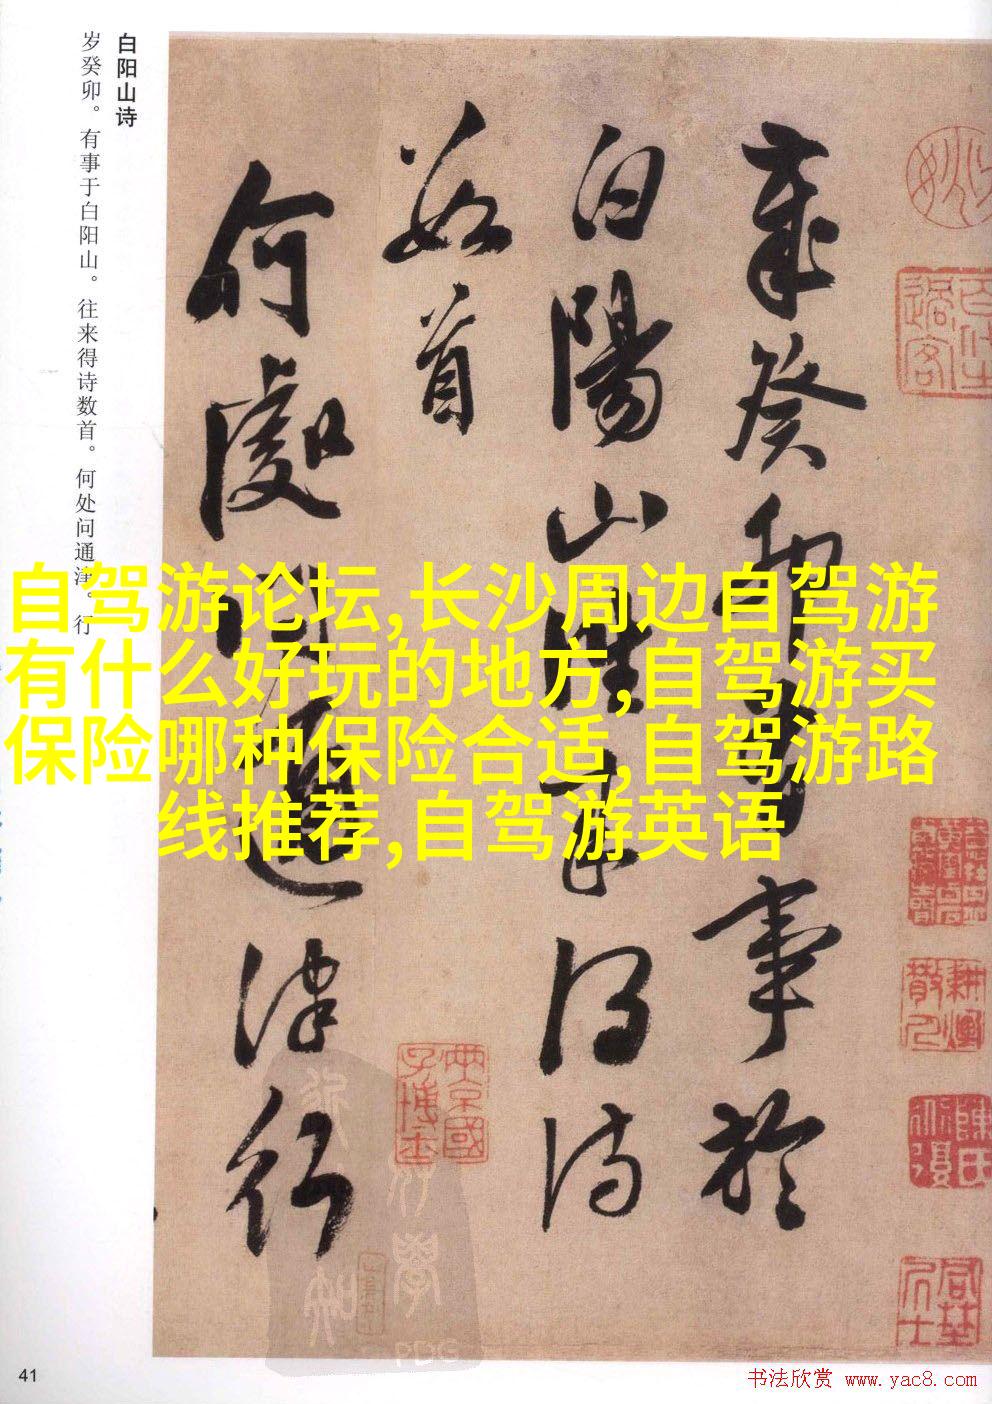 白阳山诗
岁癸卯。有事于白阳山。往来得诗数首。何处问通津。行
歲癸卯有事於
白陽山往來得詩
數首
何處問通津行
自驾游论坛,长沙周边自驾游
有什么好玩的地方,自驾游买
保险哪种保险合适,自驾游路
线推荐,自驾游英语
两京国
子博士
耕烟
散人
陈氏
PDG
41
书法欣赏 www.yac8.com